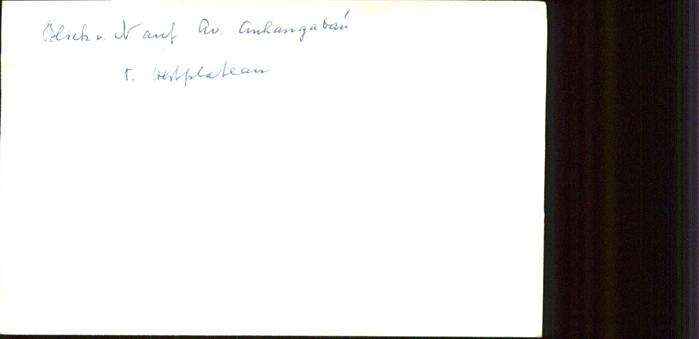 Blick v. N auf Av. Anhangabaú
r. Westplateau